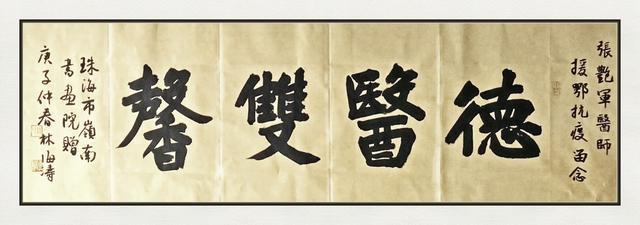 張艷軍醫師
援鄂抗疫留念
德醫雙馨
珠海市嶺南
書畫院贈
庚子仲春林海濤